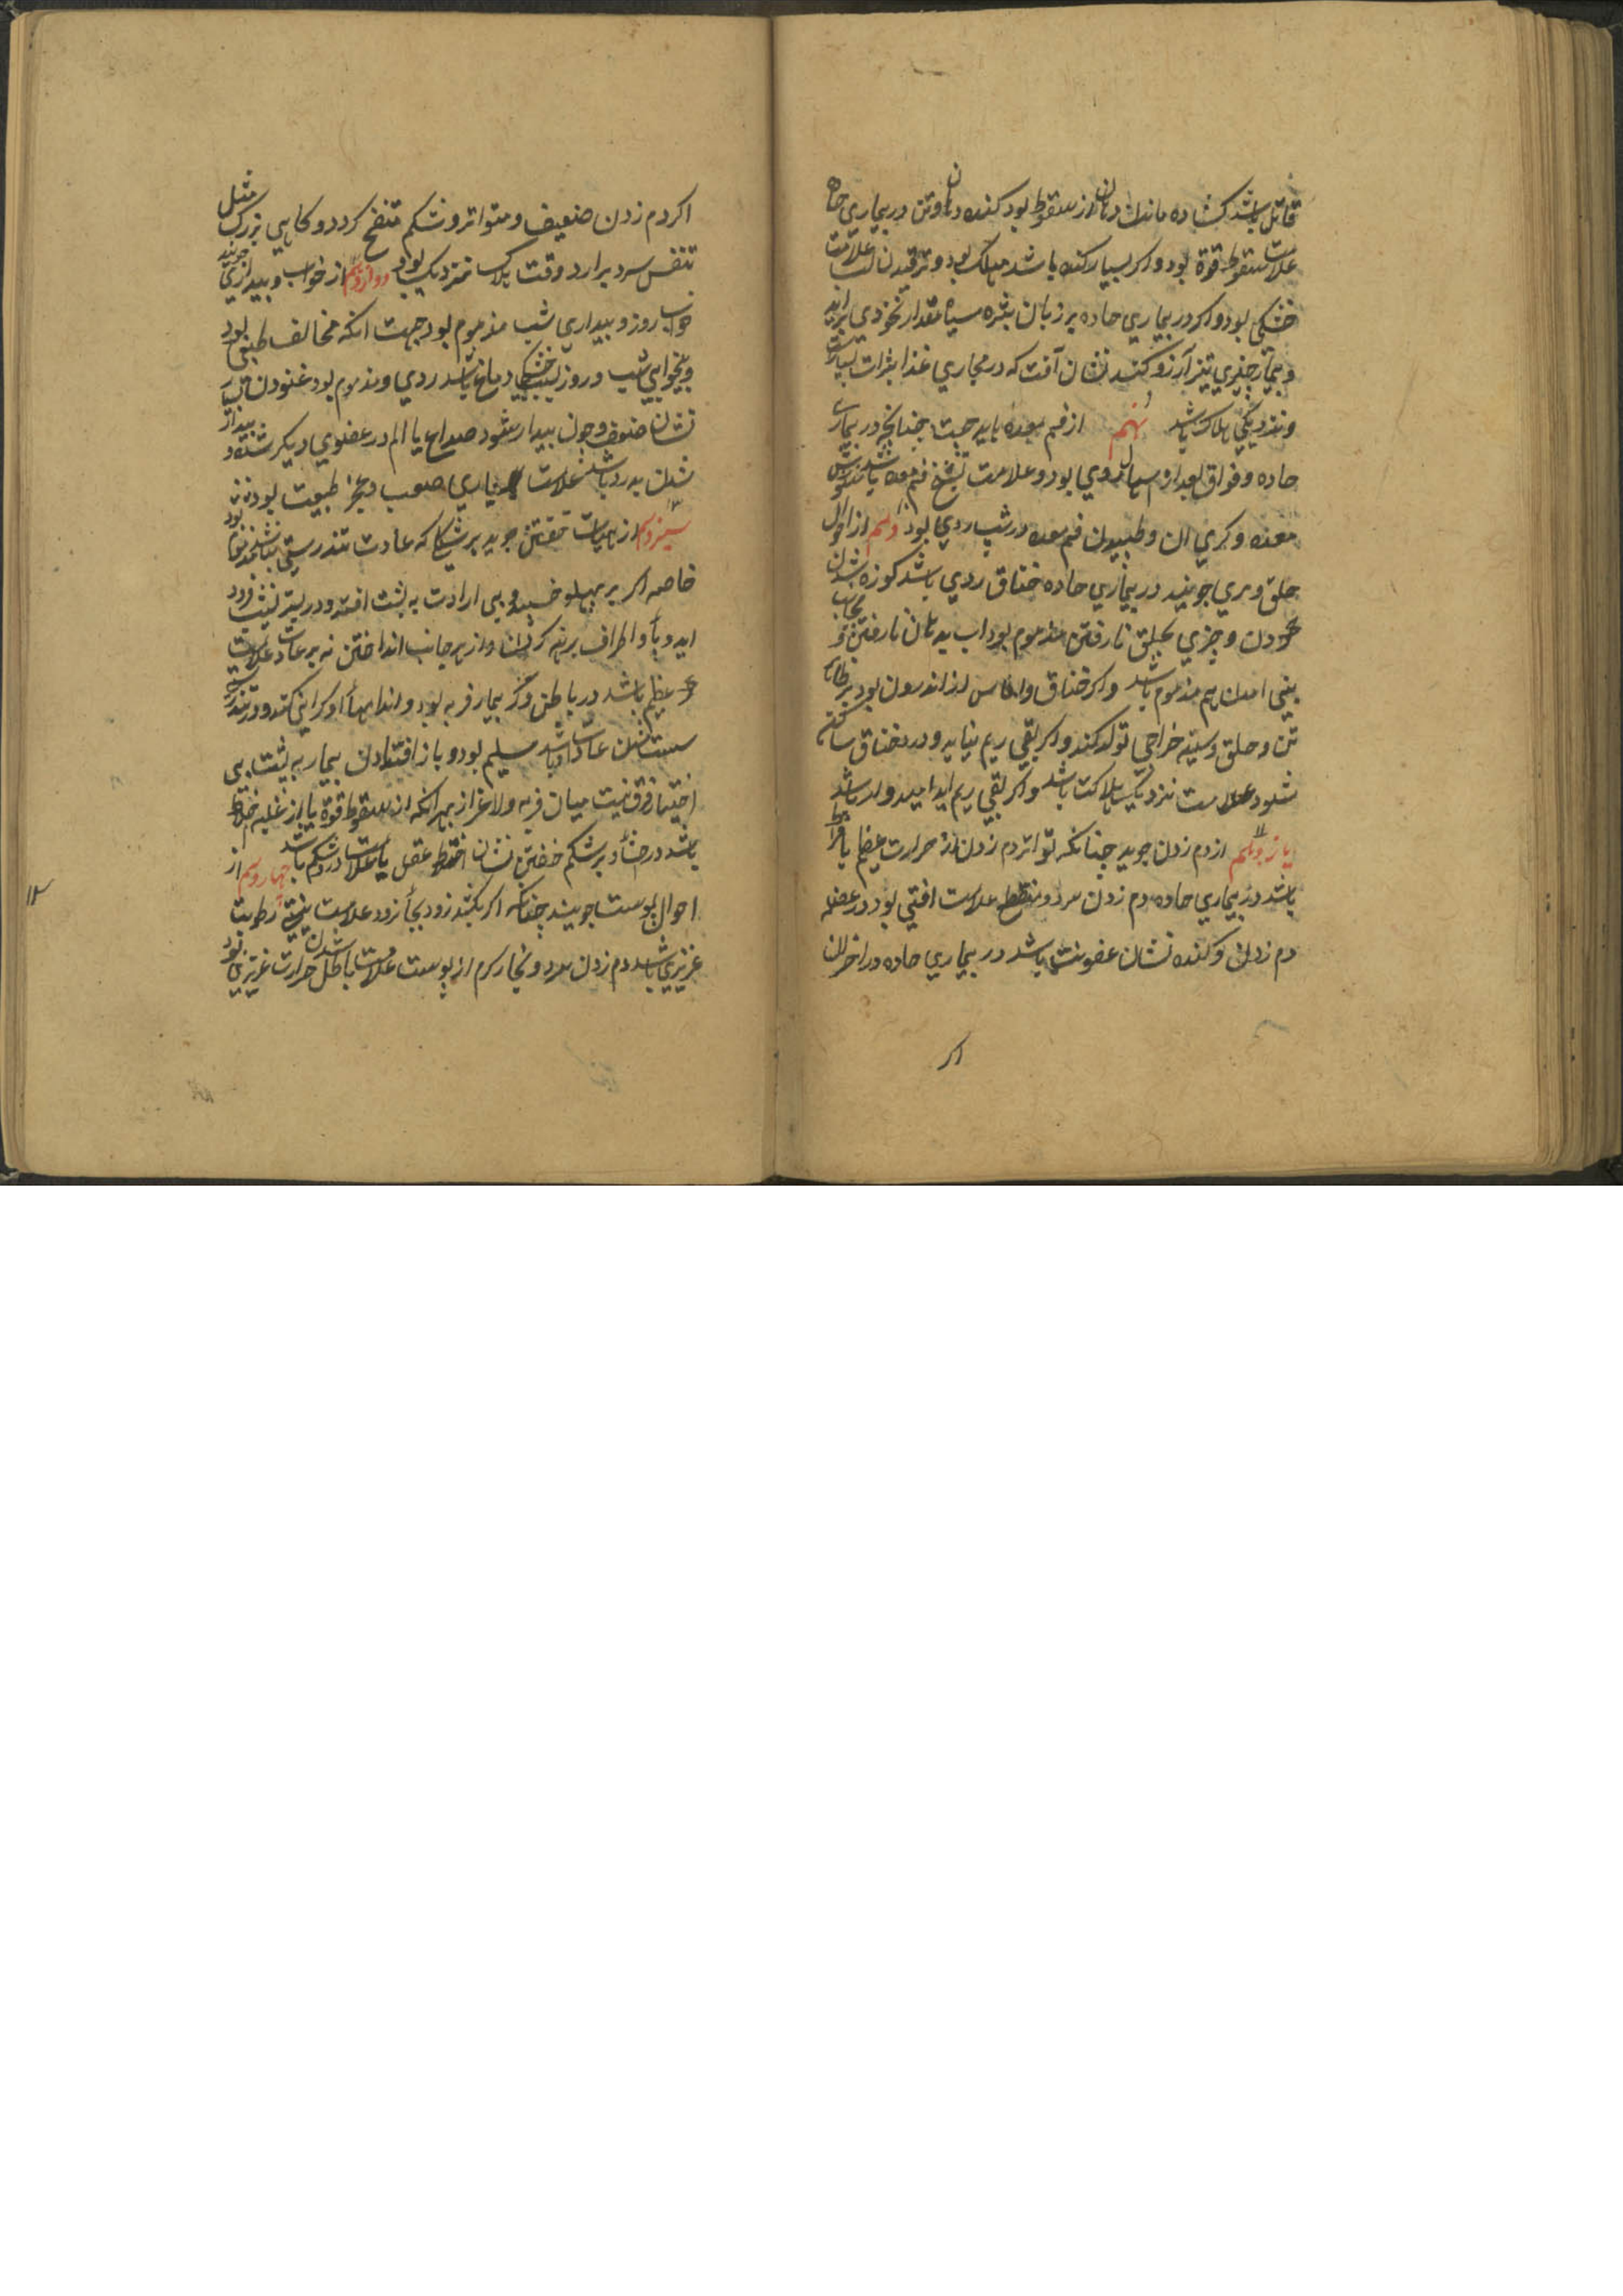 قاتل باشد کشاده ماندن دهان از سقوط بود کنده دهان وتن در بیماری حاده
علامت سقوط قوة بود واکر بسیار کنده باشد مهلک بود و ترقیدن لب علامت
خشکی بود واکر در بیماری حاده بر زبان بثره سیاه مقدار نخودی براید
وبیمار چیزی تیز آرزو کند نشان آنست که در مجاری غذا بثرات بسیارست
ونزدیکی هلاک باشد نهم از فم معده باید جست چنانچه در بیماری
حاده وفواق بعد از اسهال ردی بود وعلامت تشنج فم معده باشد وسوزش
معده وکرمی ان وطپیدن فم معده در تب ردی بود دهم از احوال
حلق ومری جویند در بیماری حاده خناق ردی باشد کوزه شدن
کردن وچیزی بحلق نارفتن مذموم بود اب بدهان نارفتن و بجانب
بینی امدن هم مذموم باشد واکر خناق واماس از اندرون بود بر ظاهر
تن وحلق وسینه خراجی تولد کند واکر بقی ریم نیاید ودرد خناق ساکن
شود علامت نزدیک هلاکت باشد واکر بقی ریم اید امیدوار باشد
یازدهم از دم زدن جوید چنانکه تواتر دم زدن از حرارت عظیم یا
باشد در بیماری حاده دم زدن سرد ومنقطع علامت افتی بود در عضله
دم زدن وکنده نشان عفونت باشد در بیماری حاده در اخر ان
اکر
اکر دم زدن ضعیف ومتواتر وشکم منتفخ کردد وکاهی بزرک مثل
تنفس سرد برارد وقت هلاک نزدیک بود دوازدهم از خواب وبیداری جویند
خواب روز وبیداری شب مذموم بود جهت انکه مخالف طبع بود
وبیخوابی شب وروز بسبب خشکی دماغ باشد ردی ومذموم بود غنودن بسیار
نشان ضعف وچون بیدار شود صداع یا الم در عضوی دیکر
شدن بدرد باشد علامت بیماری صعب وعجز طبیعت بود
سیزدهم از هیات خفتن جوید بر شکل که عادت تندرستی نباشد مذموم بود
خاصه اکر بر پهلو خسپد و بی ارادت به پشت افتد ودر بستر نشیب فرود
اید وپا واطراف برهنه کردن واز هر جانب انداختن نه بر عادت علامت
عظیم باشد در باطن وکر بیمار فربه بود واندامها او کرانی کند ودر تندرستی
سست شدن عادت او باشد سلیم بود وباز افتادن بیمار به پشت بی
اختیار فرق نیست میان فربه ولاغر از بهر انکه از سقوط قوة یا از غلبه خلط
باشد در احشا وبر شکم خفتن نشان اختلاط عقل یا علامت درد شکم باشد چهاردهم از
احوال پوست جویند چنانکه اکر بکشند زود بجا نرود علامت نیستی رطوبت
غریزی باشد دم زدن سرد وبخار کرم از پوست علامت باطل شدن حرارت غریزی بود